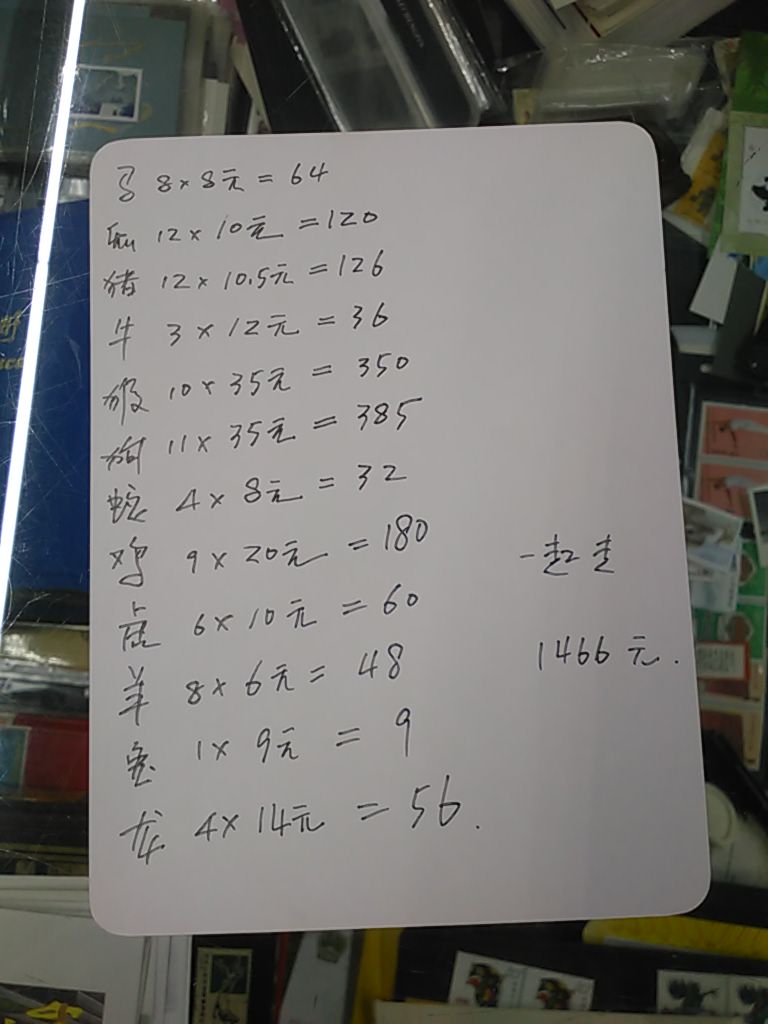 马 8×8元=64
鼠 12×10元=120
猪 12×10.5元=126
牛 3×12元=36
猴 10×35元=350
狗 11×35元=385
蛇 4×8元=32
鸡 9×20元=180
一起走
虎 6×10元=60
1466元.
羊 8×6元=48
兔 1×9元=9
龙 4×14元=56.